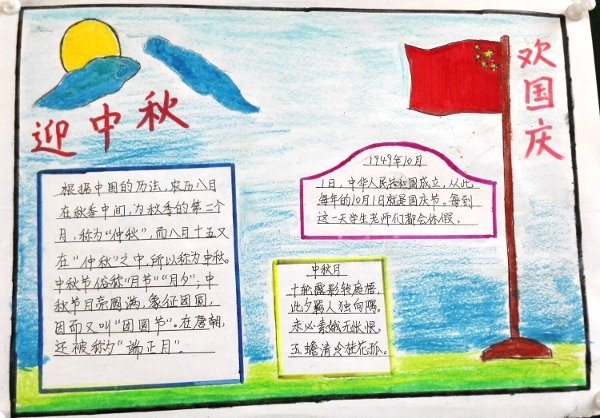 迎中秋
欢国庆
根据中国的历法,农历八月
在秋季中间,为秋季的第二个
月,称为“仲秋”,而八月十五又
在“仲秋”之中,所以称为中秋。
中秋节俗称“月节”“月夕”,中
秋节月亮圆满,象征团圆,
因而又叫“团圆节”。在唐朝,
还被称为“端正月”。
1949年10月
1日,中华人民共和国成立,从此
每年的10月1日就是国庆节。每到
这一天学生老师们都会休假。
中秋月
十轮露影转庭梧,
此夕羁人独向隅。
未必素娥无怅恨,
玉蟾清冷桂花孤。